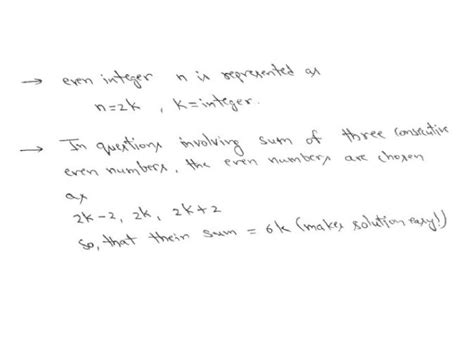 → even integer n is represented as
n=2k , k=integer.
→ In questions involving sum of three consecutive
even numbers, the even numbers are chosen
as
2k-2, 2k, 2k+2
So, that their sum = 6k (makes solution easy!)